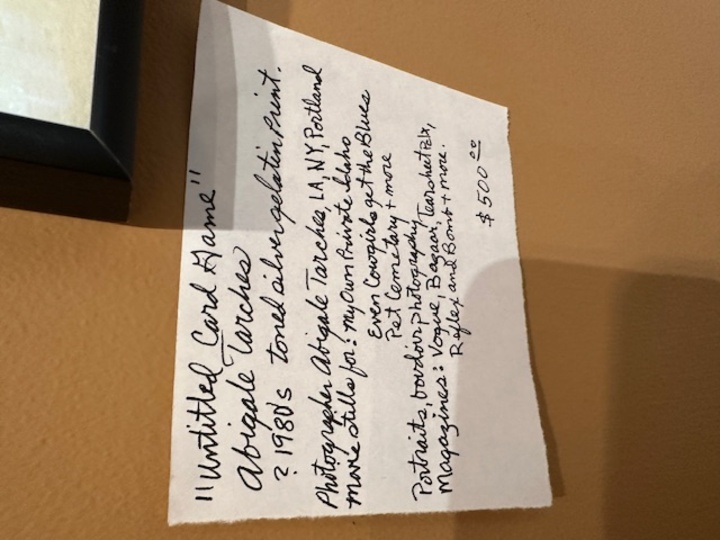 "Untitled Card Game"
Abigale Tarches
? 1980's toned silver gelatin print.
Photographer Abigale Tarches, LA, NY, Portland
movie stills for: My Own Private Idaho
Even Cowgirls get the Blues
Pet Cemetary + more
Portraits, boudoir photography
Magazines: Vogue, Bazaar, Tearsheet
Reflex and Bomb + more.
$500.00